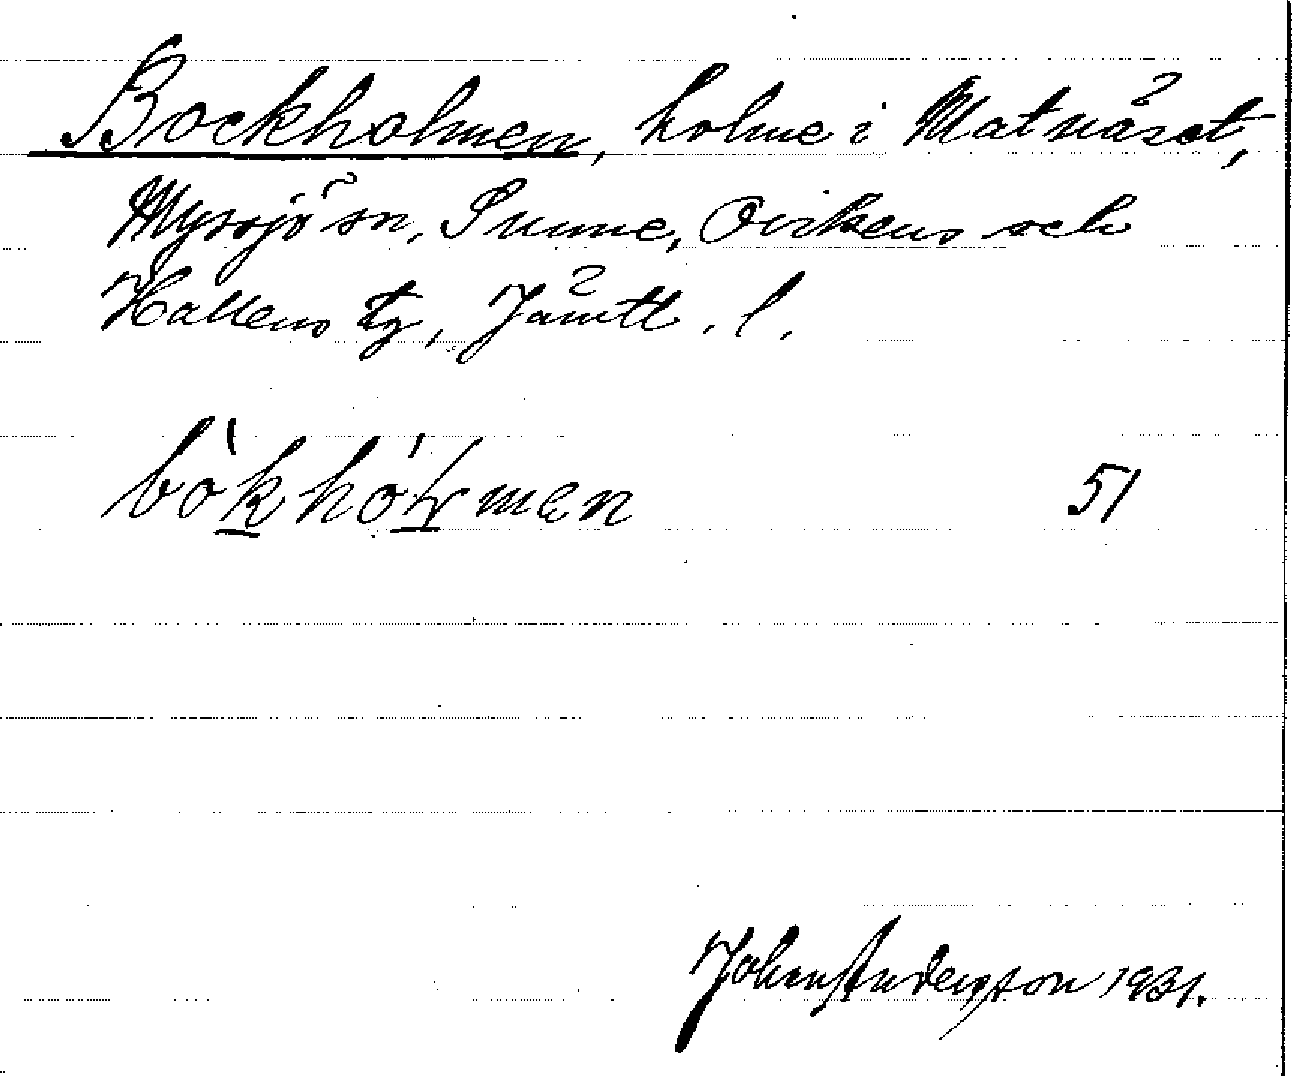 Bockholmen, holme i Matnäset,
Myssjö sn, Sunne, Ovikens och
Hallens tg, Jämtl. l.
bòkhóḷmen 51
Johan Anderson 1931.